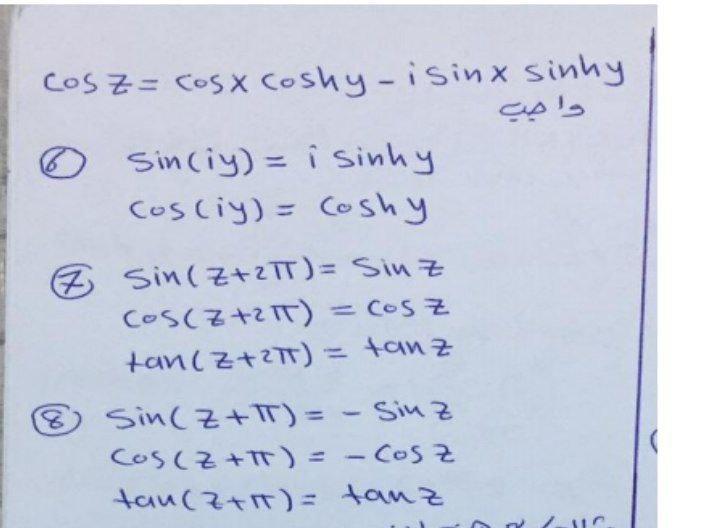 cos z = cos x cosh y - i sin x sinh y
واجب
⑥ sin(iy) = i sinh y
cos(iy) = cosh y
⑦ sin(z+2π) = sin z
cos(z+2π) = cos z
tan(z+2π) = tan z
⑧ sin(z+π) = - sin z
cos(z+π) = - cos z
tan(z+π) = tan z